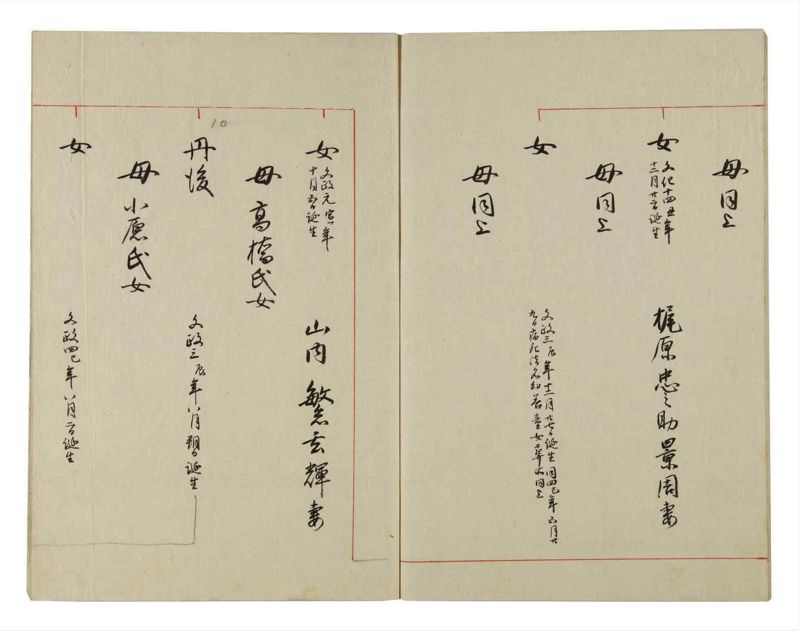 母同上
女 文化十四丑年
十二月廿二日誕生
梶原忠之助景周妻
母同上
女
文政三辰年十二月廿七日誕生同四巳年六月廿
九日病死法名幻 童女葬所同上
母同上
女 文政元寅年
十月 日誕生
山内繁玄輝妻
母高橋氏女
10
丹後
文政三辰年八月朔日誕生
母小原氏女
女
文政四巳年八月二日誕生